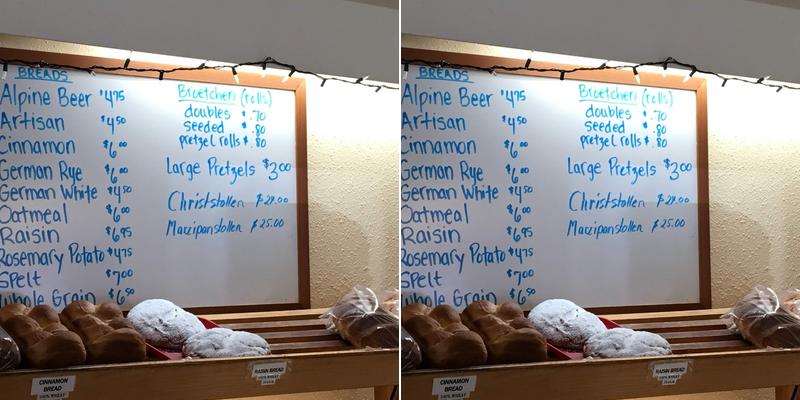 BREADS
Alpine Beer $4.75
Artisan $4.50
Cinnamon $6.00
German Rye $6.00
German White $4.50
Oatmeal $6.00
Raisin $6.95
Rosemary Potato $4.75
Spelt $7.00
Whole Grain $6.50
Broetchen (rolls)
doubles $.70
seeded $.80
pretzel rolls $.80
Large Pretzels $3.00
Christstollen $24.00
Marzipanstollen $25.00
CINNAMON
BREAD
100% WHEAT
RAISIN BREAD
100% WHEAT
BREADS
Alpine Beer $4.75
Artisan $4.50
Cinnamon $6.00
German Rye $6.00
German White $4.50
Oatmeal $6.00
Raisin $6.95
Rosemary Potato $4.75
Spelt $7.00
Whole Grain $6.50
Broetchen (rolls)
doubles $.70
seeded $.80
pretzel rolls $.80
Large Pretzels $3.00
Christstollen $24.00
Marzipanstollen $25.00
CINNAMON
BREAD
100% WHEAT
RAISIN BREAD
100% WHEAT